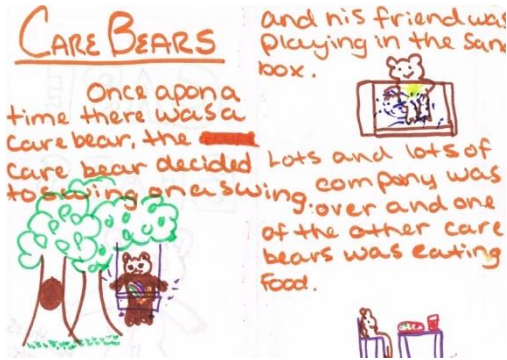 CARE BEARS
Once apon a
time there was a
care bear, the
care bear decided
to swing on a swing.
and his friend was
playing in the sand
box.
Lots and lots of
company was
over and one
of the other care
bears was eating
food.